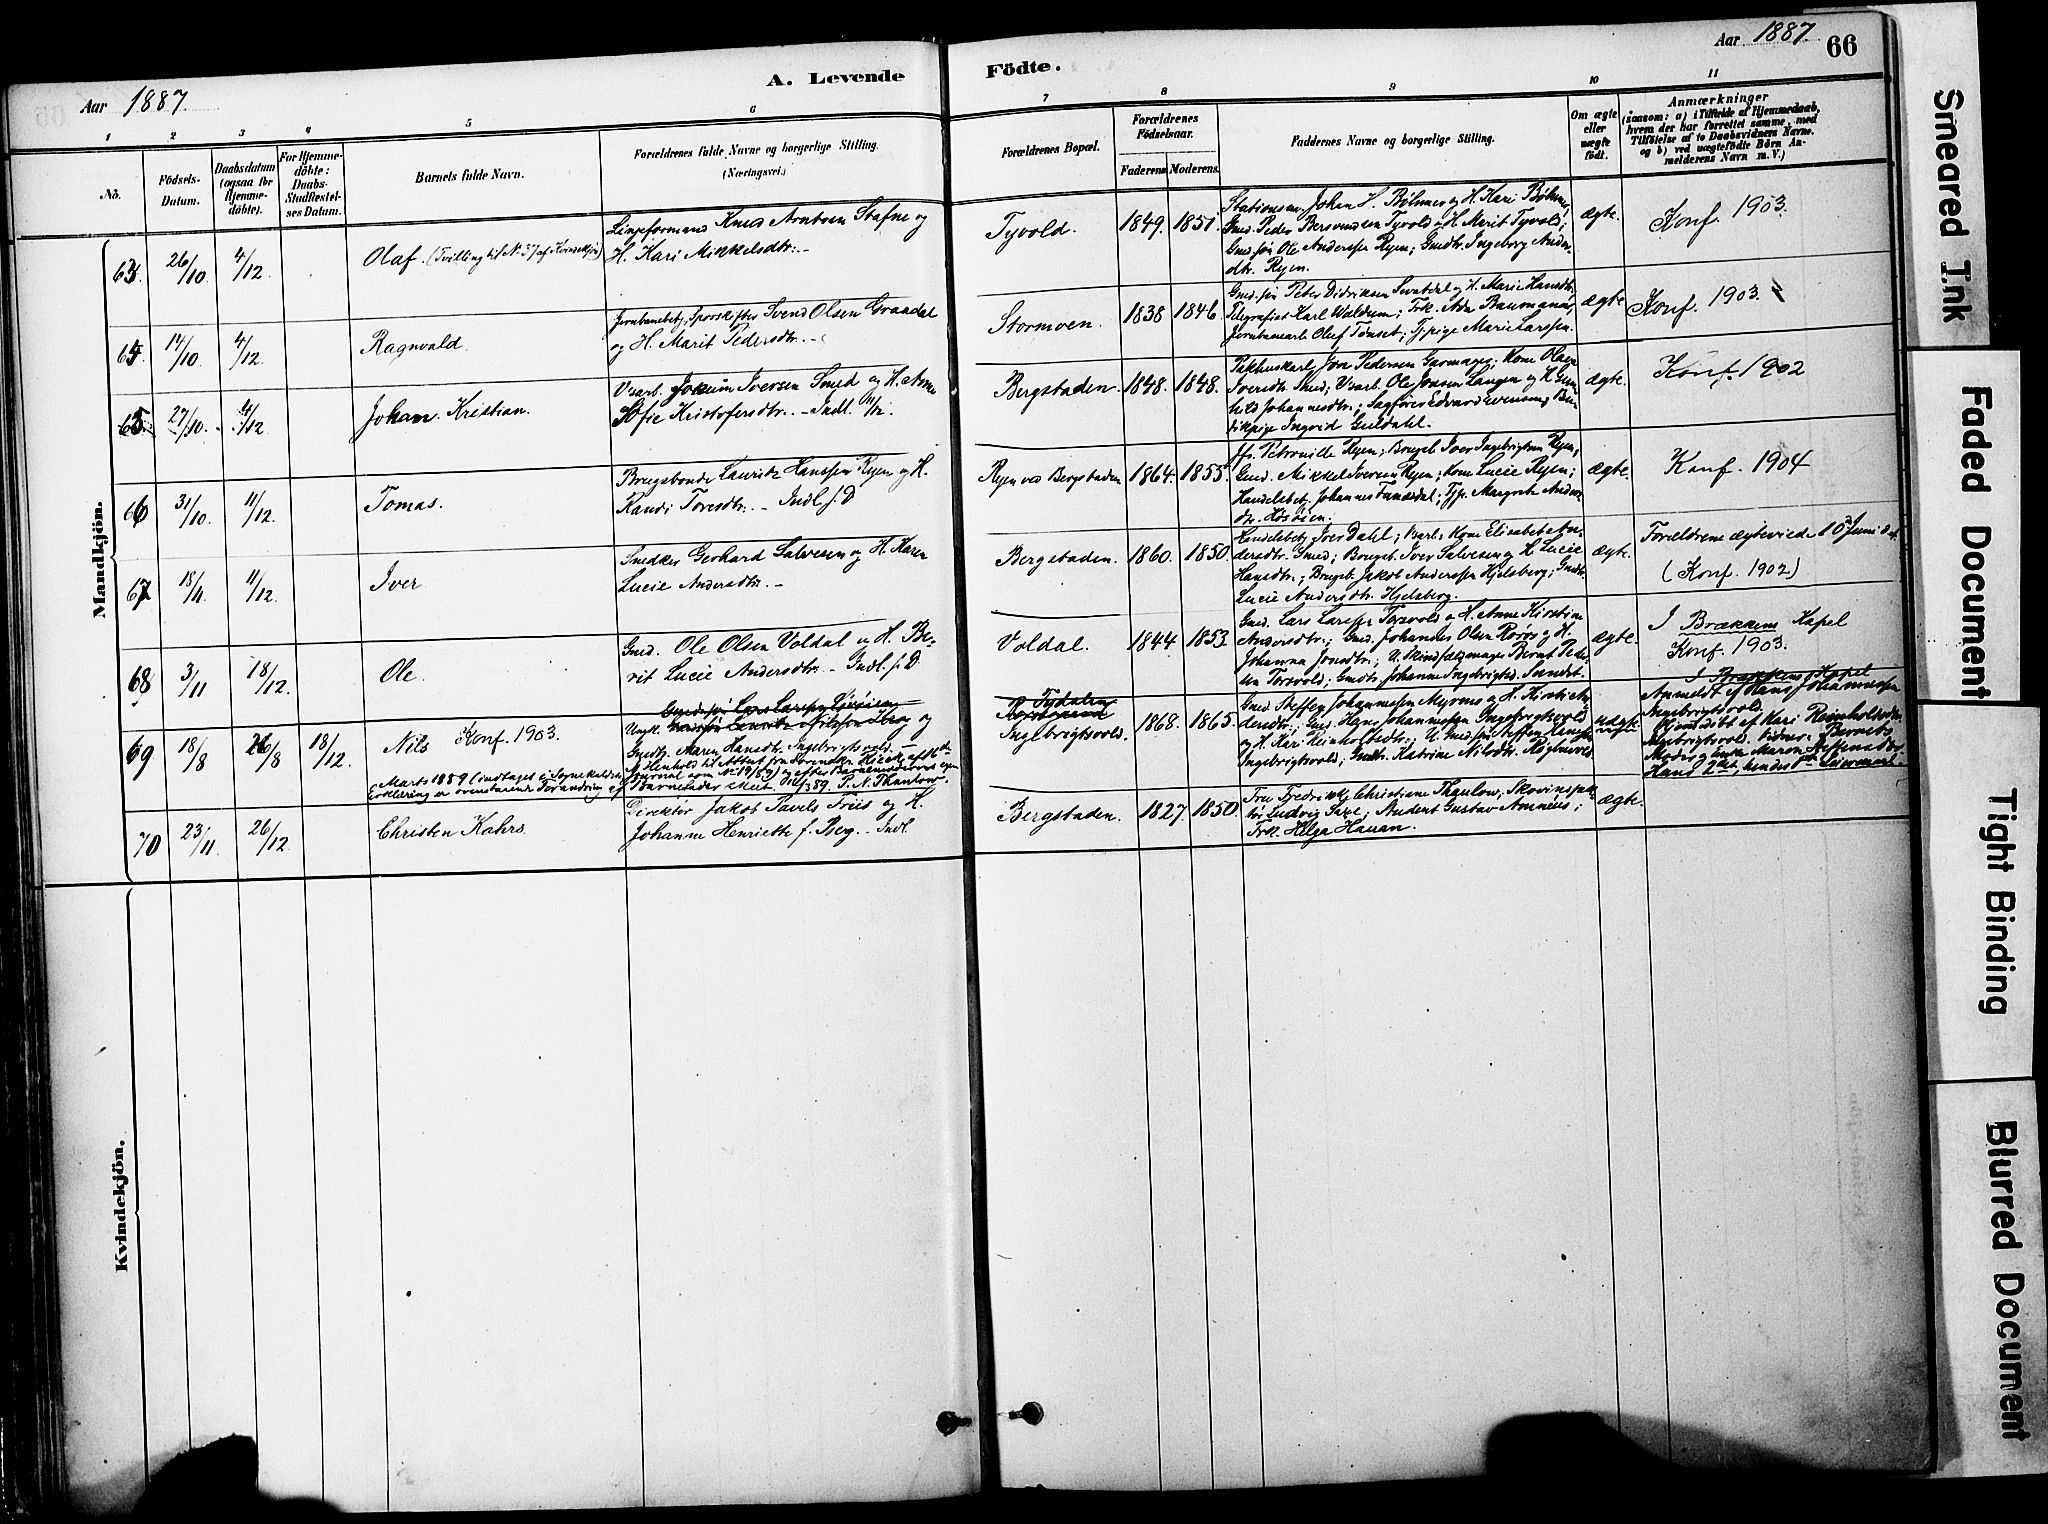 Aar 1887.
A. Levende
Födte.
Aar 1887. 66
1 2 3 4 5 6 7 8 9 10 11
No.
Födsels-Datum.
Daabsdatum (ogsaa for Hjemme-döbte).
For Hjemme-döbte: Daabs-Stadfæstel-ses Datum.
Barnets fulde Navn.
Forældrenes fulde Navne og borgerlige Stilling. (Næringsvei.)
Forældrenes Bopæl.
Forældrenes Födselsaar.
Faderens Moderens.
Faddernes Navne og borgerlige Stilling.
Om ægte eller uægte födt.
Anmærkninger
(saasom: a) i Tilfælde af Hjemmedaab, hvem der har forrettet samme, med Tilföielse af to Daabsvidners Navne, og b) ved uægtefödte Börn Anmelderens Navn m. V.)
Mandkjön.
63 26/10 4/12 Olaf. (Tvilling til N. 57 af Kvindekjøn)
Linjeformand Knud Arntsen Stafne og
H. Kari Mikkelsdtr. –
Tyvold. 1849. 1851.
Stationsmr. Johan H. Bølmer og H. Kari Bølmer,
Gmd. Peder Bersvendsen Tyvold og H. Marit Tyvold;
Gmd.søn Ole Anderssen Ryen; Gmdtr. Ingeborg Anders-
dtr. Ryen.
ægte. Konf. 1903.
64 14/10 4/12 Ragnvald.
Jernbanebetj. Sporskifter Svend Olsen Graadal
og H. Marit Pedersdtr. –
Stormoen. 1838 1846.
Gmd. søn Peter Didriksen H. Marie Hansdtr.
Telegrafist Karl Waldrum; Frk. Baumann,
Jernbanearb. Oluf Tønset; Tjpige Marie Larssen.
ægte Konf. 1903.
65 27/10. 4/12 Johan Kristian.
V.arb. Jokum Iversen Smed og H. Anne
Sofie Kristofersdtr. – Indl. 11/12.
Bergstaden. 1848. 1848.
Pakhuskarl Jon Pedersen Kone Olsen
Iversdtr. Smed; V.arb. Ole Jonsen Langen og H. Gun-
hild Johannesdtr.; Sagfører Edvard Evensen, Bu-
tikpige Ingrid Guldahl.
ægte. Konf. 1902
66 31/10. 11/12. Tomas.
Brugsbonde Lauritz Hanssen Ryen og H.
Randi Toresdtr. – Indl. f. D
Ryen ved Bergstaden 1864. 1855.
Petronille Ryen; Brugsb. Iver Ingebrigtsen Ryen,
Gmd. Mikkel Iversen Ryen; Kone Lucie Ryen;
Handelsbetj. Johannes Tjp. Margrete Anders-
dtr. Høsøien.
ægte. Konf. 1904
67 18/11. 11/12. Iver
Snedker Gerhard Salvesen og H. Karen
Lucie Andersdtr. –
Bergstaden. 1860. 1850.
Handelsbetj. Iver Dahl; Kone Elisabet An-
dersdtr. Smed; Brugsb. Iver Salvesen og H. Lucie
Hansdtr.; Brugsb. Jakob Anderssen Hjelsberg; Gmdtr.
Lucie Andersdtr. Hjelsberg.
ægte. Forældrene ægteviede 10 Juni
(Konf. 1902)
68 3/11 18/12. Ole.
Gmd. Ole Olsen Voldal og H. Be-
rit Lucie Andersdtr. – Indl. f. D.
Voldal. 1844 1853
Gmd. Lars Larssen Torsvold og H. Anne Kirstine
Andersdtr.; Gmd. Johannes Olsen Røros og H.
Johanna Jonsdtr.; U. Skindfældmager Bernt Peder-
sen Torsvold; Gmdtr. Johanne Ingebrigtsd. Sundet.
ægte. I Brækkens Kapel
Konf. 1903.
69 18/8 21/8 18/12. Nils Konf. 1903.
Ungk. og
Gmdtr. Maren Hansdtr. Ingebrigtsvold. –
Marts 1889 (indtaget i
P. N. Thantow
Tydalen
Ingebrigtsvold. 1868. 1865.
Gmd. Steffen Johannessen Myrmo og H. Kirsti
dersdtr.; Gmd. Hans Johannessen Ingebrigtsvold
og H. Kari Reinholdsdtr.; U. Gmd. søn Steffen Hansen
Ingebrigtsvold; Gmdtr. Katrine Nilsdtr.
uægte I Brækkens Kapel
Anmeldt af Hans Johannessen
Ingebrigtsvold.
Hjemdøbt af Kari Reinholdsdtr.
Ingebrigtsvold. Vidner: Barnets
70 23/11. 26/12 Christen Kahrs.
Direktør Jakob Pavels Friis og H.
Johanne Henriette f. Berg. – Indl.
Bergstaden. 1827. 1850.
Fru Fredrikke Christiane Thaulow; Skovinspek-
tør Ludvig Student Gustav Amnéus;
Frk. Helga Hauan.
ægte.
Kvindekjön.
Smeared Ink
Faded Document
Tight Binding
Blurred Document